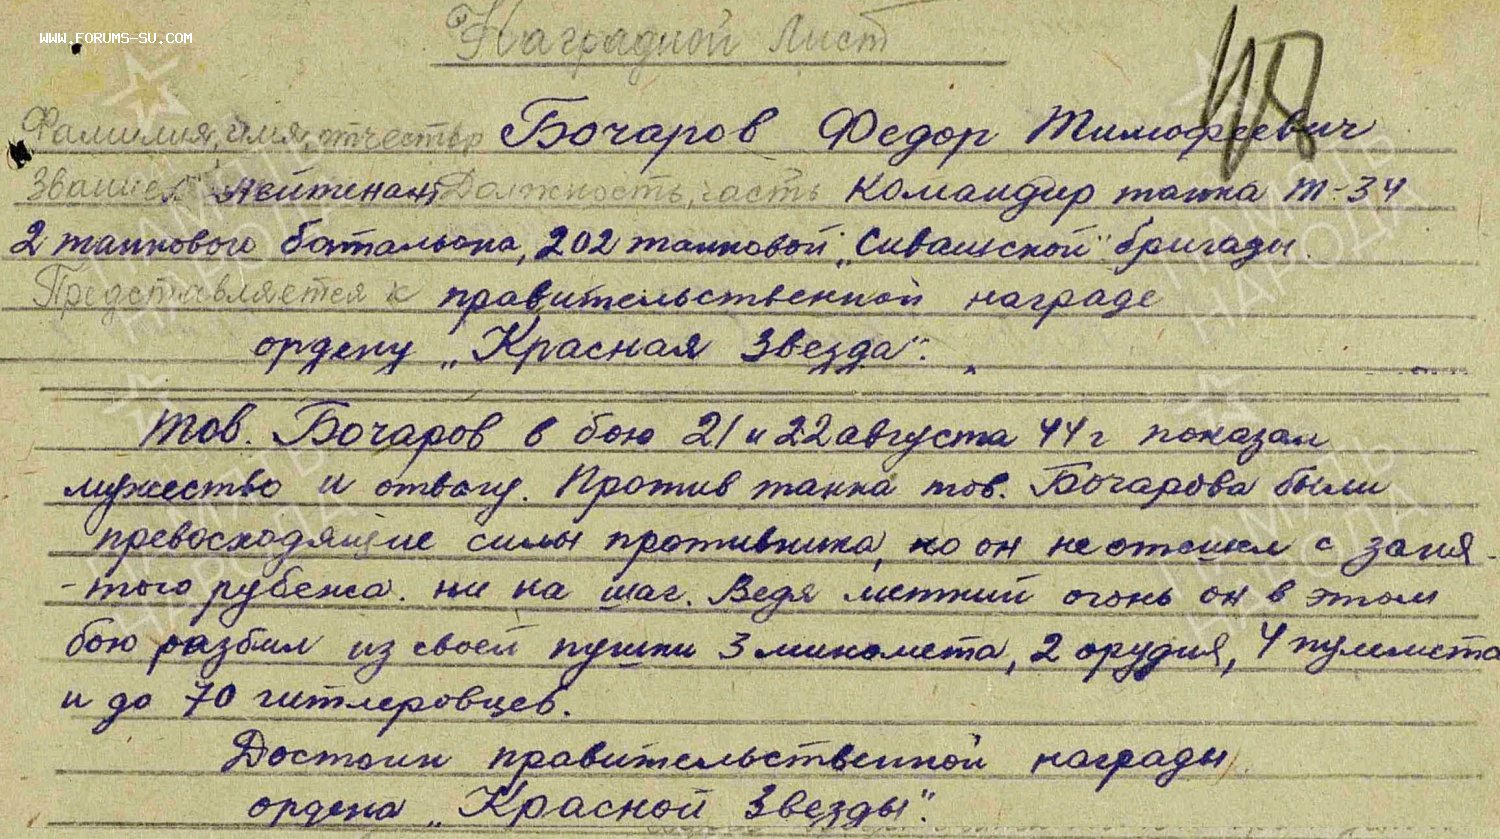 WWW.FORUMS-SU.COM
Наградной Лист
Фамилия, имя, отчество Бочаров Федор Тимофеевич
Звание Лейтенант Должность, часть Командир танка Т-34
2 танкового батальона, 202 танковой „Сивашской" бригады.
Представляется к правительственной награде
ордену „Красная Звезда".
Тов. Бочаров в бою 21 и 22 августа 44 г показал
мужество и отвагу. Против танка тов. Бочарова были
превосходящие силы противника, но он не отошел с заня-
-того рубежа. ни на шаг. Ведя меткий огонь он в этом
бою разбил из своей пушки 3 миномета, 2 орудия, 4 пулемета
и до 70 гитлеровцев.
Достоин правительственной награды
ордена „Красной Звезды".
ПАМЯТЬ НАРОДА
ПАМЯТЬ НАРОДА
ПАМЯТЬ НАРОДА
ПАМЯТЬ НАРОДА